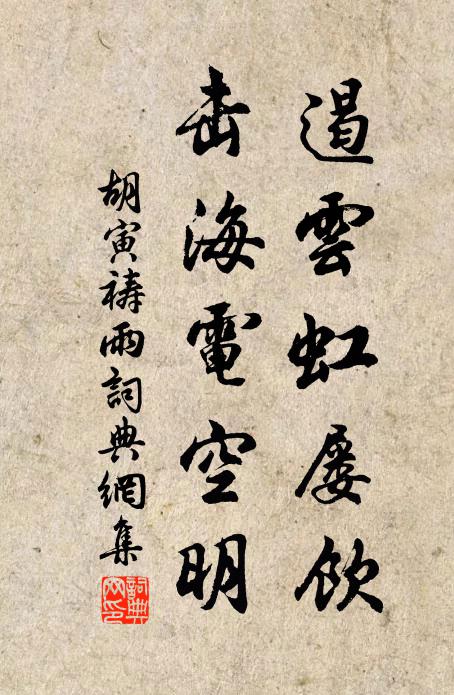 遏雲虹屡飲
击海電空明
胡寅祷雨詞典網集
詞典網印